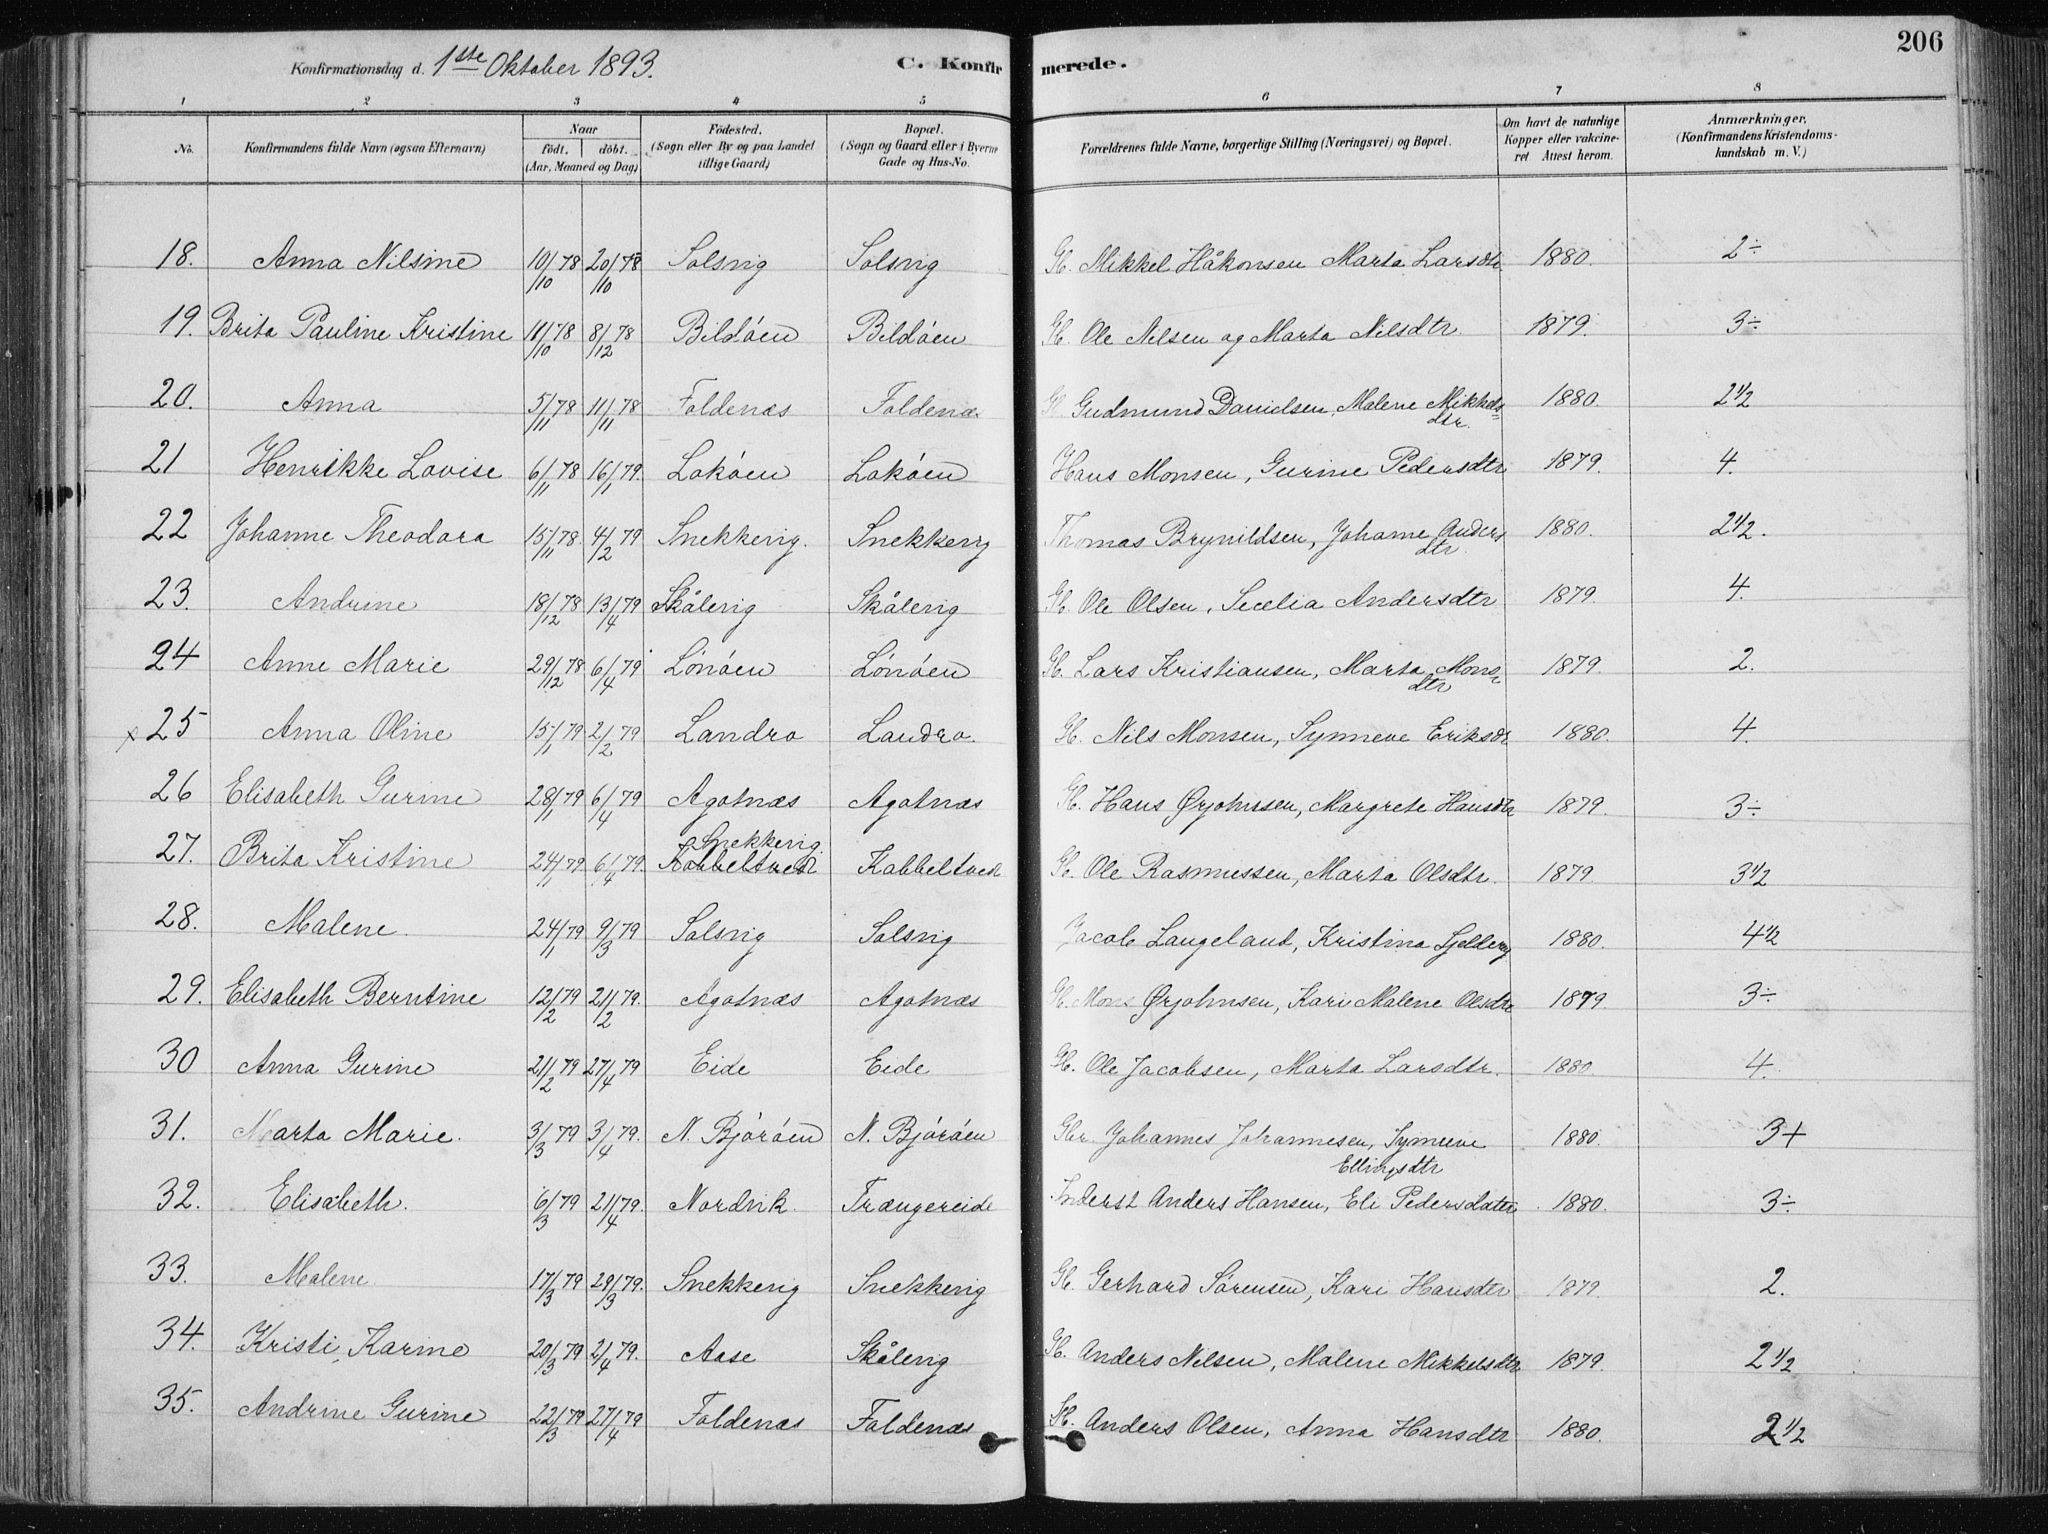 206
Konfirmationsdag d. 1ste Oktober 1893.
C. Konfirmerede.
1 2 3 4 5 6 7 8
No. Konfirmandens fulde Navn (ogsaa Efternavn) Naar födt. döbt. (Aar, Maaned og Dag) Födested. (Sogn eller By og paa Landet tillige Gaard) Bopæl. (Sogn og Gaard eller i Byerne Gade og Hus-No. Forældrenes fulde Navne, borgerlige Stilling (Næringsvei) og Bopæl. Om havt de naturlige Kopper eller vakcineret Attest herom. Anmærkninger. (Konfirmandens Kristendomskundskab m. V.)
18. Anna Nilsine 10/10 78 20/10 78 Solsvig Solsvig G. Mikkel Håkonsen Marta Larsdtr 1880. 2÷
19. Brita Pauline Kristine 11/10 78 8/12 78 Bildöen Bildöen G. Ole Nilsen og Marta Nilsdtr 1879. 3÷
20. Anna 5/11 78 11/11 78 Foldenæs Foldenæs G. Gudmund Danielsen, Malene Mikkelsdtr. 1880. 2 1/2
21 Henrikke Lovise 6/11 78 16/1 79. Loköen Loköen Hans Monsen, Gurine Pedersdtr 1879. 4.
22 Johanne Theodora 15/11 78. 4/2 79 Snekkevig. Snekkevig Thomas Brynildsen, Johanne Andersdtr 1880. 2 1/2.
23. Andrine 18/12 78 13/4 79 Skålevig Skålevig G. Ole Olsen, Secelia Andersdtr 1879. 4.
24 Anne Marie 29/12 78. 6/4 79 Lönöen Lönöen G. Lars Kristiansen, Marta Monsdtr 1879. 2.
x 25 Anna Oline 15/1 79 2/2 79 Landro Landro. G. Nils Monsen, Synneve Eriksdtr 1880. 4.
26 Elisabeth Gurine 28/1 79 6/4 79 Agotnæs Agotnæs G. Hans Ørjohnsen, Margrete Hansdtr 1879. 3÷
27. Brita Kristine 24/1 79 6/4 79. Snekkevig. Kobbeltvedt Kobbeltvedt G. Ole Rasmussen, Marta Olsdtr. 1879. 3 1/2
28. Malene. 24/1 79 9/3 79 Solsvig Solsvig Jacob Langeland, Kristina 1880. 4 1/2
29. Elisabeth Berntine 12/2 79 21/2 79. Agotnæs Agotnæs G. Mons Ørjohnsen, Kari Malene Olsdtr 1879 3÷
30 Anna Gurine 21/2 79 27/4 79 Eide Eide G. Ole Jacobsen, Marta Larsdtr. 1880. 4.
31. Marta Marie. 3/3 79 3/4 79. N. Björöen N. Björöen Gbr. Johannes Johannesen, Synneve Ellingsdtr 1880. 3+
32. Elisabeth. 6/3 79 21/4 79. Nordvik. Trængereide Inderst Anders Hansen, Eli Pedersdatter 1880. 3÷
33. Malene 17/3 79 29/3 79. Snekkevig Snekkevig G. Gerhard Sörensen, Kari Hansdtr 1879. 2.
34. Kristi Karine 20/3 79 2/4 79. Aase Skålevig G. Anders Nilsen, Malene Mikkelsdtr 1879. 2 1/2
35. Andrine Gurine 22/3 79 27/4 79 Foldenæs Foldenæs G. Anders Olsen, Anna Hansdtr 1880. 2 1/2